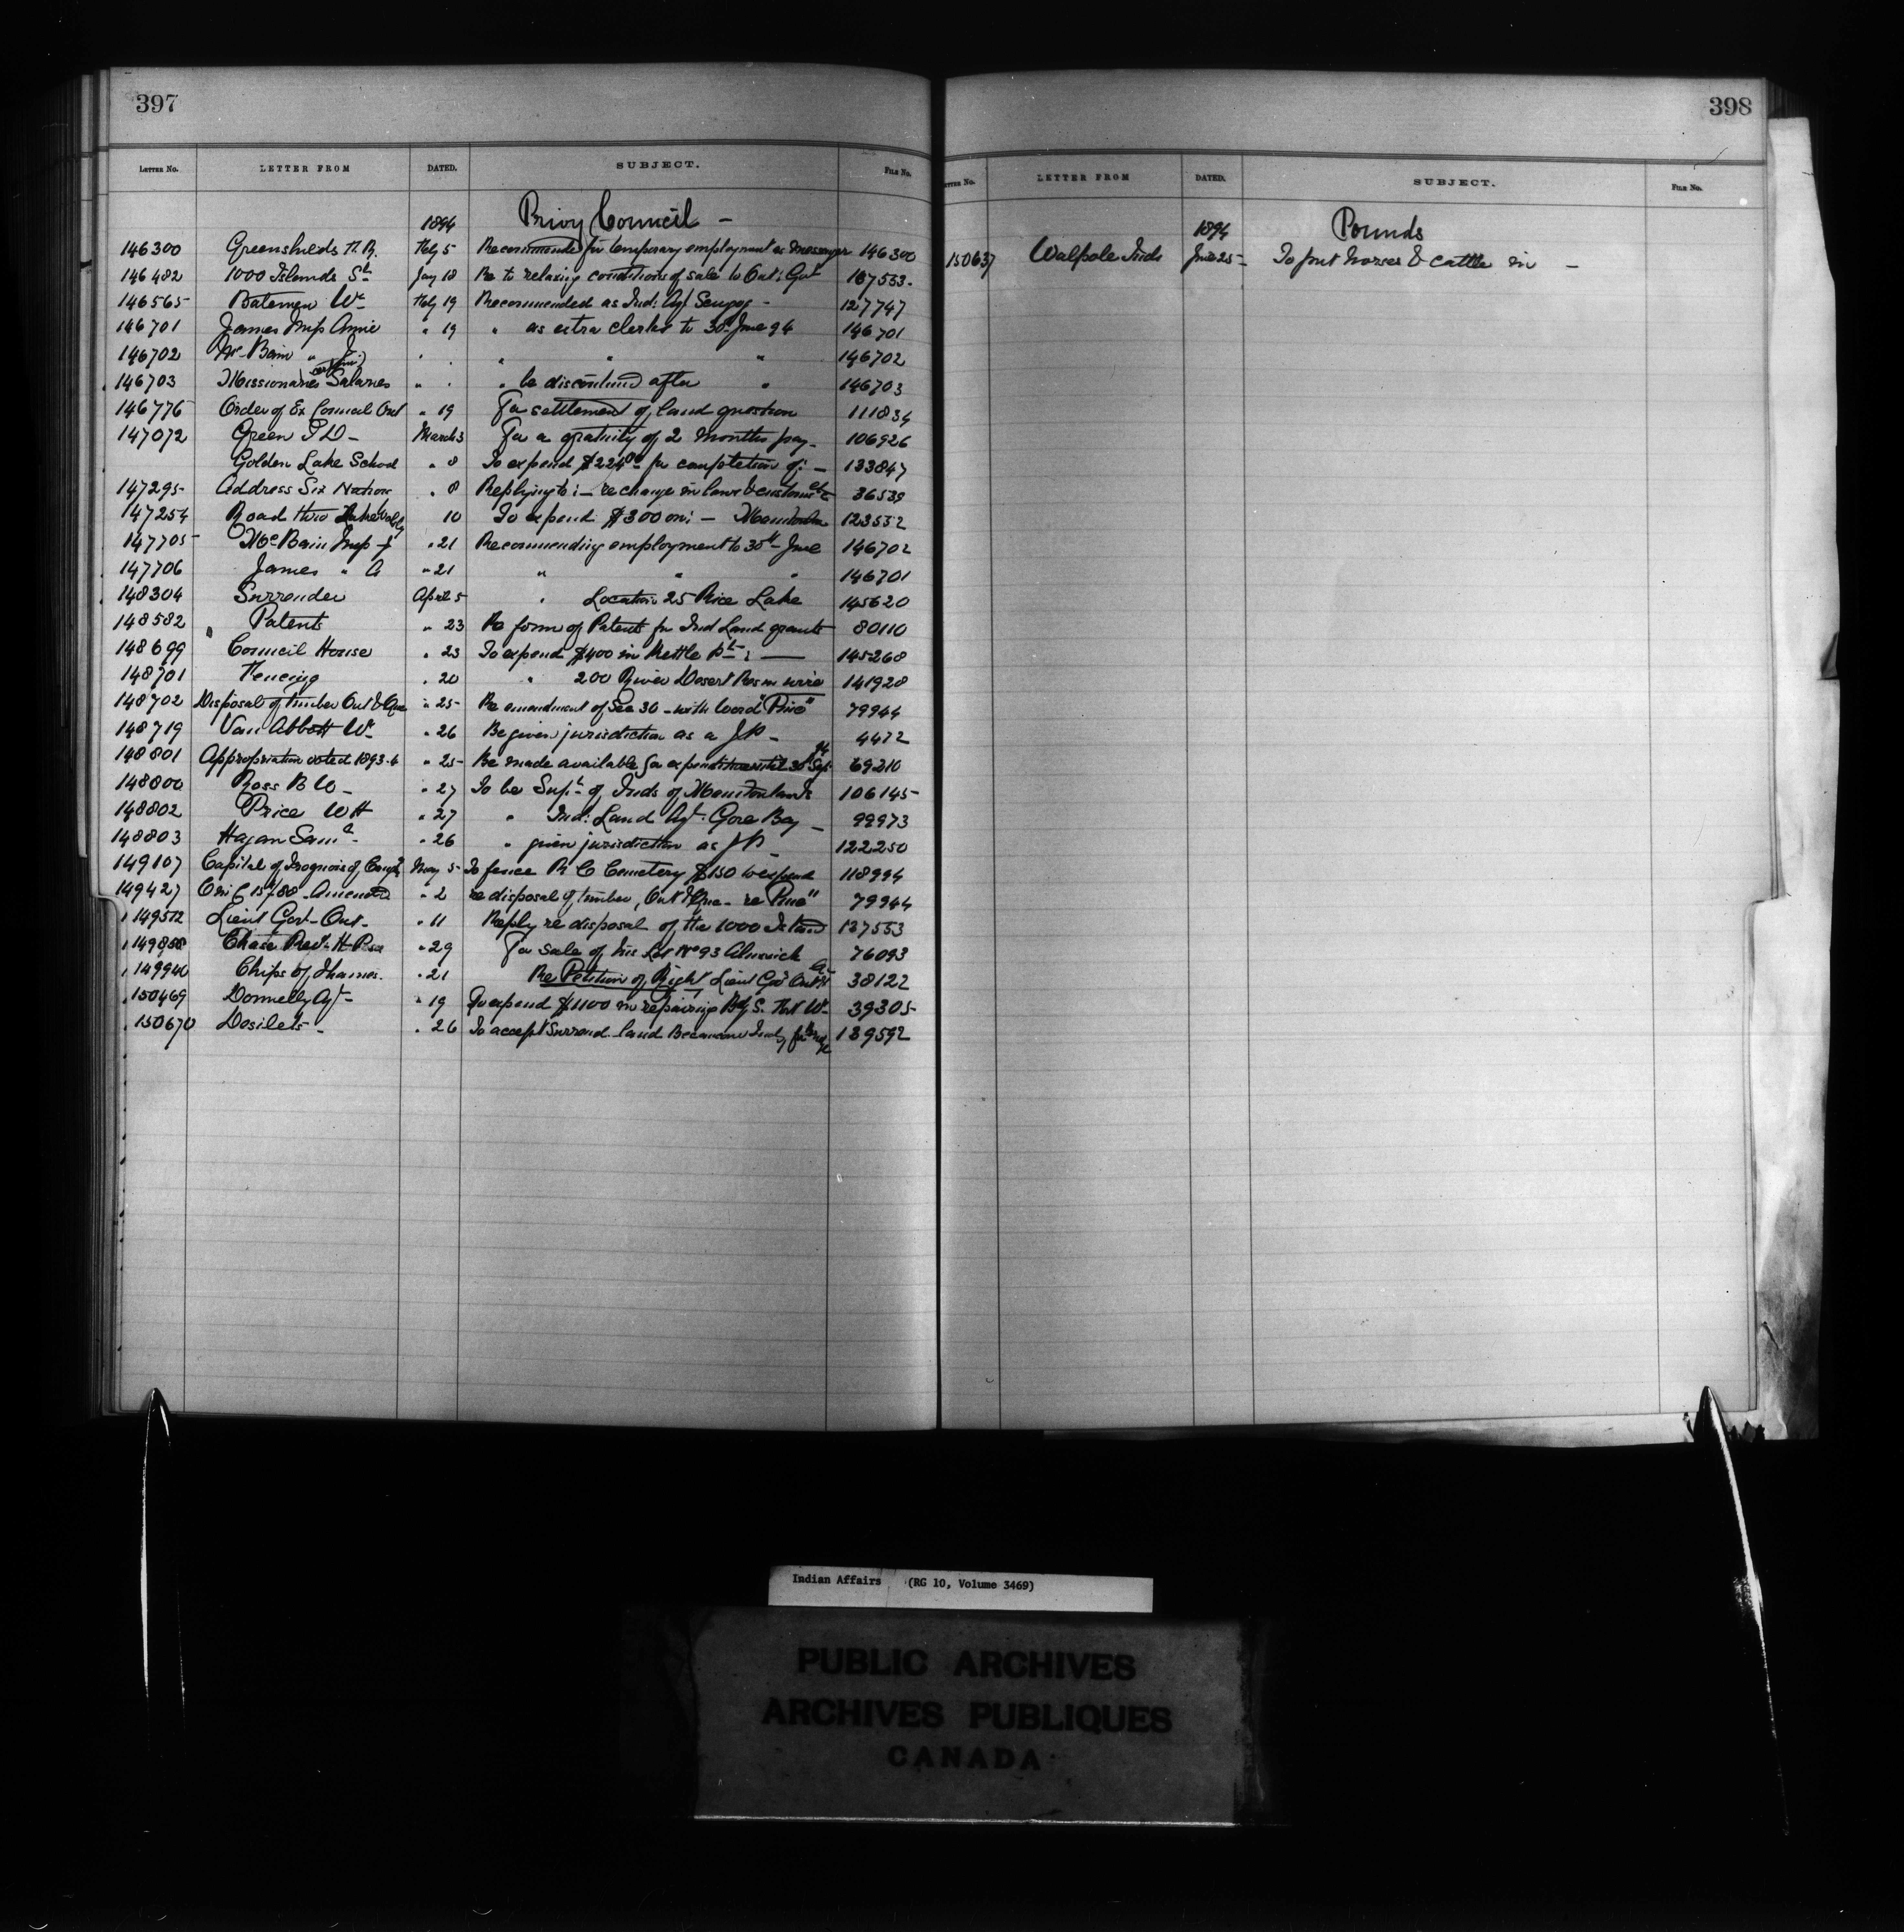 397
LETTER No. LETTER FROM DATED. SUBJECT. FILE No.
1894 Privy Council -
146300 Greenshields H.R. Feby 5 Recommended for temporary employment as messenger 146300
146482 1000 Islands St. Jany 18 Re to relaxing conditions of sale to Ont: Govt 137553-
146565 Bateman Wm Feby 19 Recommended as Ind: Agt Scugog - 127747
146701 James Miss Annie " 19 " as extra clerk to 30th June 94 146701
146702 McBain " J. " " " " " 146702
146703 Missionaries certain Salaries " " " be discontinued after " 146703
146776 Order of Ex Council Ont " 19 For settlement of land question 111834
147072 Green T D - March 3 For a gratuity of 2 months pay - 106926
Golden Lake School " 8 To expend $224.00 for completion of: - 133847
147295 Address Six Nation " 8 Replying to: - re change in laws & customs etc 36539
147254 Road thro 10 To expend $300 on: - Manitoulin 123532
147705 McBain Miss J " 21 Recommending employment to 30th June 146702
147706 James " A " 21 " " " 146701
148304 Surrender April 5 " Location 25 Rice Lake 145620
148582 Patents " 23 Re form of Patents for Ind Land grants 80110
148699 Council House " 23 To expend $400 in Kettle Pt: - 145268
148701 Fencing " 20 " 200 River Desert Res in wire 141928
148702 Disposal of timber Ont & Que " 25- Re amendment of Sec 30 - with word "Pine" 79944
148719 Van Abbott Wm " 26 Be given jurisdiction as a J.P - 4472
148801 Appropriation voted 1893-4 " 25- Be made available for expenditure until 30th Sep 94 69210
148800 Ross B W - " 27 To be Supt. of Inds of Manitowaning 106145-
148802 Price W H " 27 " Ind: Land Agt. Gore Bay - 99973
148803 Hagan Saml " 26 " given jurisdiction as J P - 122250
149107 Capital of Iroquois of Caugh May 5- To fence R C Cemetery $150 to expend 118994
149427 O in C 15/9/88 Amended " 2 re disposal of timber, Ont & Que - re "Pine" 79944
149572 Lieut Gov - Ont - " 11 Reply re disposal of the 1000 Island 137553
149808 Chase Revd. H Pse " 29 For sale of his Lot No 93 Alnwick 76093
149940 Chips of Thames. " 21 Re Petition of Right Lieut Gov Ont 38122
150469 Donnelly Agt - " 19 To expend $1100 in repairing Bdg S. Fort Wm 39305-
150670 Desilets - " 26 To accept Surrend. land Becancour Inds 139592
398
LETTER No. LETTER FROM DATED. SUBJECT. FILE No.
1894 Pounds
150637 Walpole Inds June 25- To put horses & cattle in -
Indian Affairs (RG 10, Volume 3469)
PUBLIC ARCHIVES
ARCHIVES PUBLIQUES
CANADA